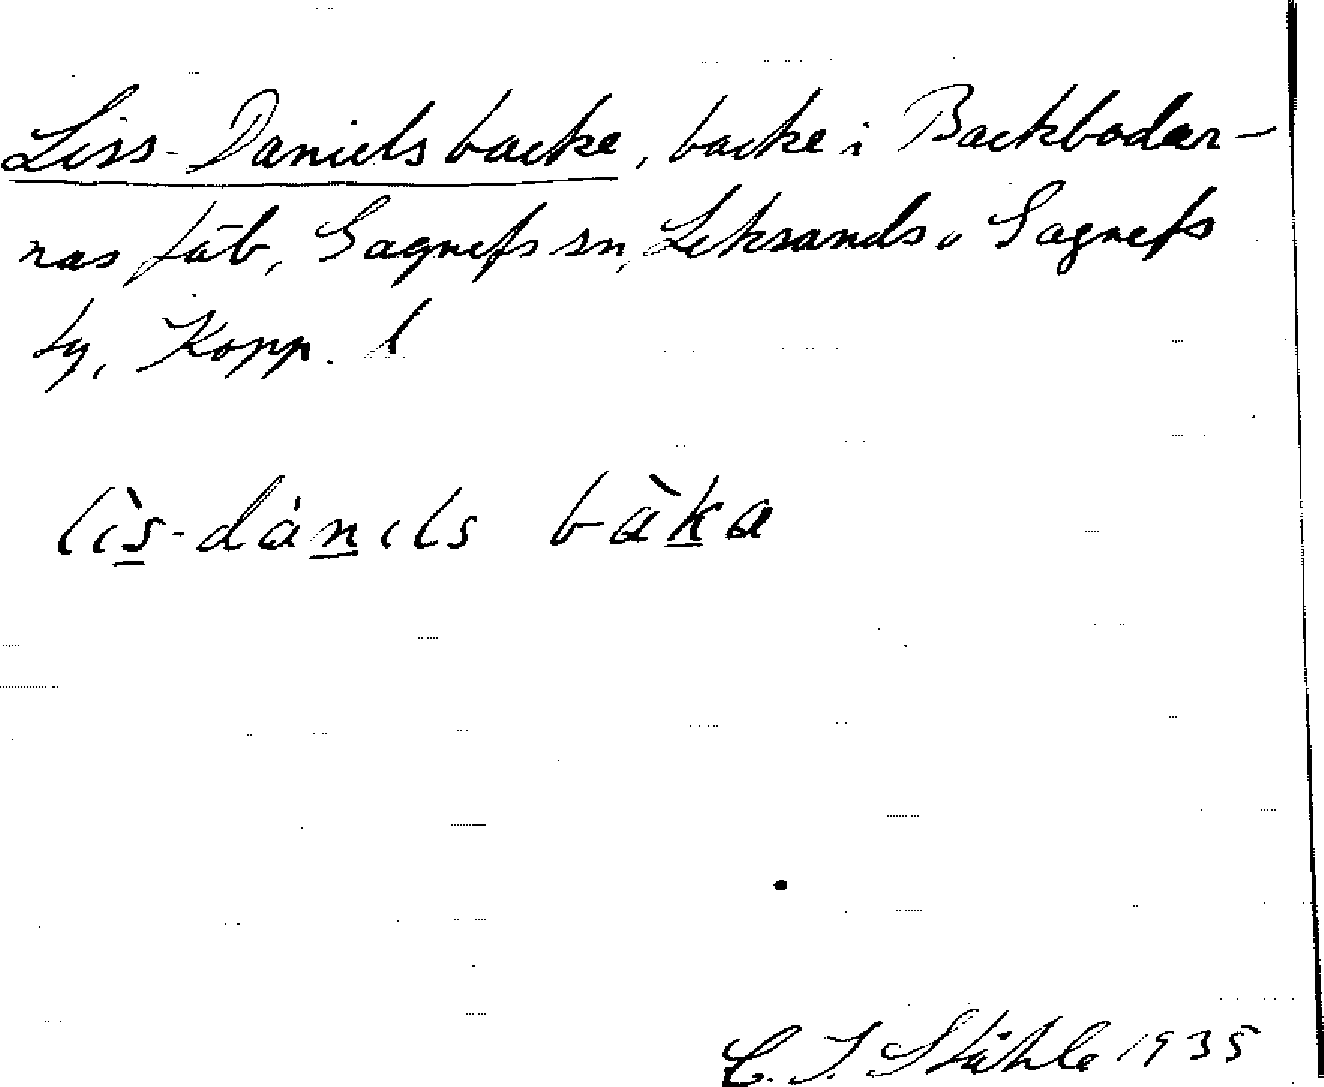 Liss-Daniels backe, backe i Backbodar-
nas fäb, Gagnefs sn, Leksands o Gagnefs
tg, Kopp. l
lìs-dánils bàka
C. I. Ståhle 1935